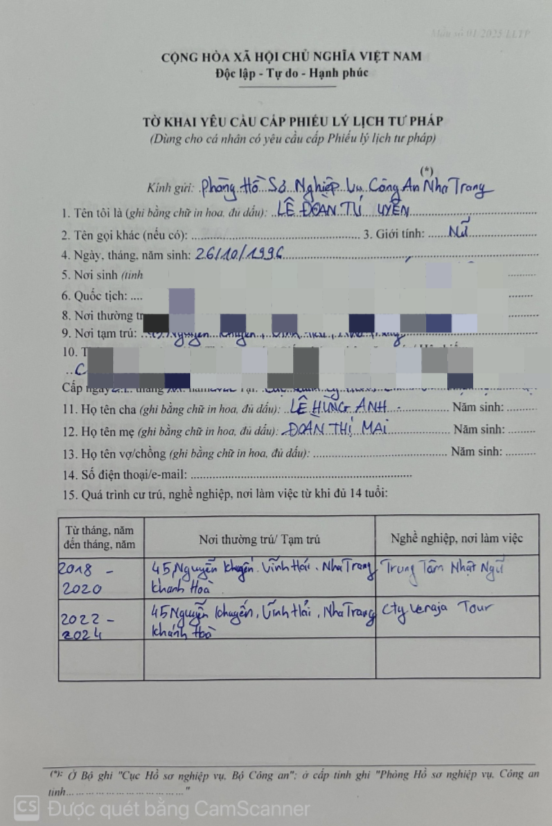 Mẫu số 01/2025/LLTP
CỘNG HÒA XÃ HỘI CHỦ NGHĨA VIỆT NAM
Độc lập - Tự do - Hạnh phúc
TỜ KHAI YÊU CẦU CẤP PHIẾU LÝ LỊCH TƯ PHÁP
(Dùng cho cá nhân có yêu cầu cấp Phiếu lý lịch tư pháp)
(*)
Kính gửi: Phòng Hồ Sơ Nghiệp Vụ Công An Nha Trang
1. Tên tôi là (ghi bằng chữ in hoa, đủ dấu): LÊ ĐOÀN TÚ UYÊN
2. Tên gọi khác (nếu có): 3. Giới tính: Nữ
4. Ngày, tháng, năm sinh: 26/10/1996
5. Nơi sinh (tỉnh
6. Quốc tịch:
8. Nơi thường tr
9. Nơi tạm trú:
10. T
C
Cấp ngày
11. Họ tên cha (ghi bằng chữ in hoa, đủ dấu): LÊ HÙNG ANH Năm sinh:
12. Họ tên mẹ (ghi bằng chữ in hoa, đủ dấu): ĐOÀN THỊ MAI Năm sinh:
13. Họ tên vợ/chồng (ghi bằng chữ in hoa, đủ dấu): Năm sinh:
14. Số điện thoại/e-mail:
15. Quá trình cư trú, nghề nghiệp, nơi làm việc từ khi đủ 14 tuổi:
Từ tháng, năm đến tháng, năm
Nơi thường trú/ Tạm trú
Nghề nghiệp, nơi làm việc
2018 - 2020
45 Nguyễn Khuyến, Vĩnh Hải, Nha Trang
Khánh Hoà
Trung Tâm Nhật Ngữ
2022 - 2024
45 Nguyễn Khuyến, Vĩnh Hải, Nha Trang
Khánh Hoà
Cty Tour
(*): Ở Bộ ghi "Cục Hồ sơ nghiệp vụ, Bộ Công an"; ở cấp tỉnh ghi "Phòng Hồ sơ nghiệp vụ, Công an
tỉnh.............................."
CS Được quét bằng CamScanner